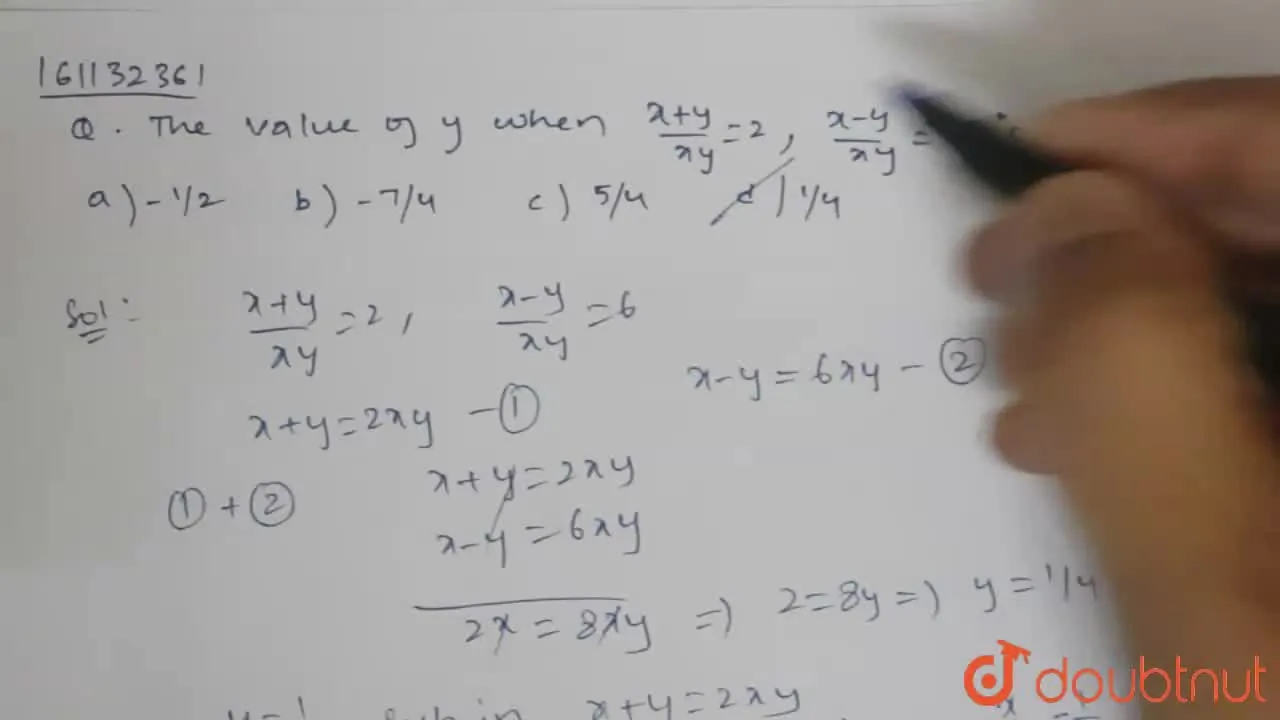 161132361
Q. The value of y when x+y/xy = 2, x-y/xy =
a) -1/2 b) -7/4 c) 5/4 d) 1/4
Sol: x+y/xy = 2, x-y/xy = 6
x+y = 2xy - ① x-y = 6xy - ②
① + ② x+y = 2xy
x-y = 6xy
2x = 8xy => 2 = 8y => y = 1/4
x+y = 2xy
doubtnut